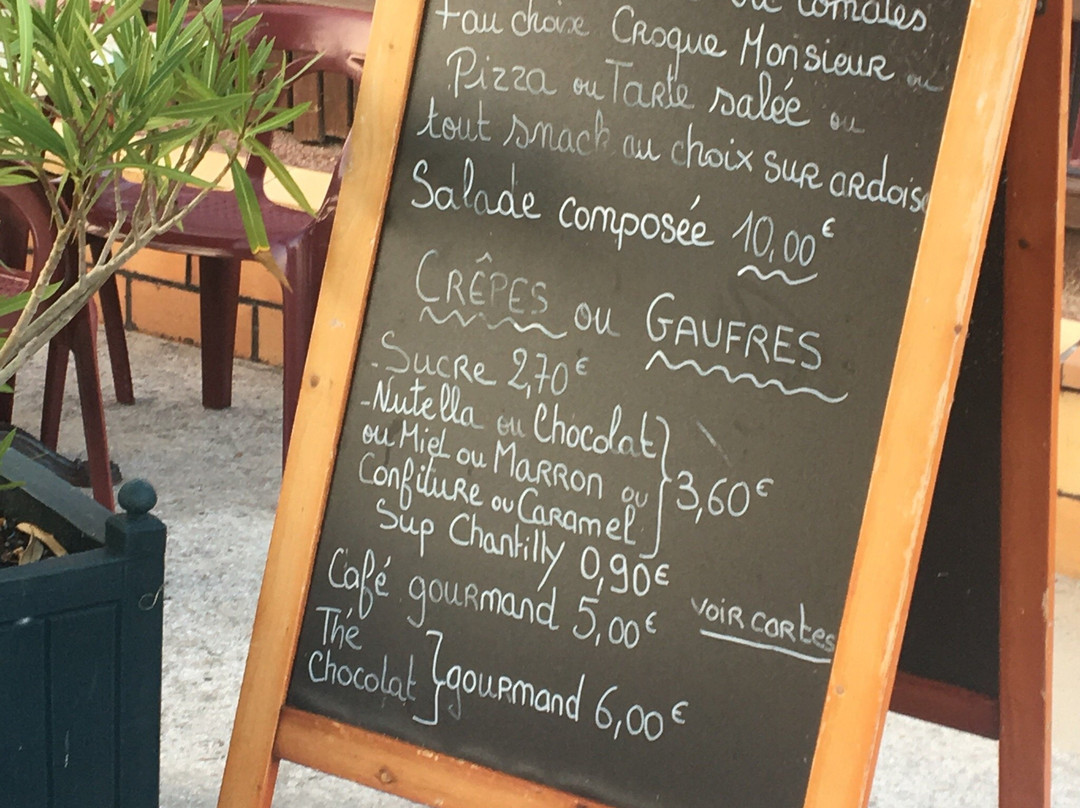 tomates
+ au choix Croque Monsieur ou
Pizza ou Tarte salée ou
tout snack au choix sur ardoise
Salade composée 10,00€
CRÊPES ou GAUFRES
- Sucre 2,70€
- Nutella ou Chocolat
ou Miel ou Marron ou
Confiture ou Caramel } 3,60€
Sup Chantilly 0,90€
Café gourmand 5,00€ voir cartes
Thé
Chocolat } gourmand 6,00€